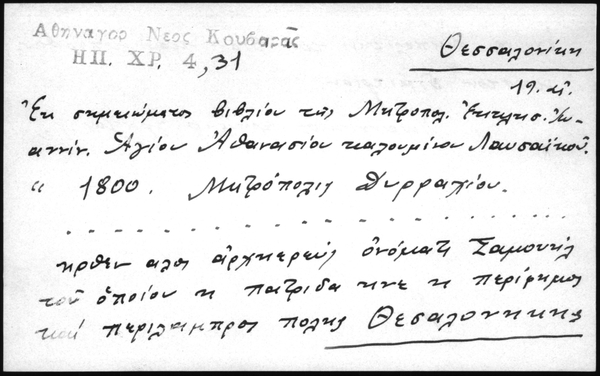 Αθηναγορ Νεος Κουβαρᾶς
ΗΠ. ΧΡ. 4, 31
Θεσσαλονίκη
19. αἰ.
Ἐκ σημειώματος βιβλίου τῆς Μητροπολ. Ἐκκλησ. Ἰω-
αννίν. Ἁγίου Ἀθανασίου καλουμένου Λαυσαϊκοῦ.
" 1800. Μητρόπολις Δυρραχίου.
ηρθεν αλος ἀρχιερεὺς ὀνόματι Σαμουὴλ
τοῦ ὁποίου η πατρίδα ηνε η περίφημος
καί περίλαμπρος πολης Θεσαλονηκης